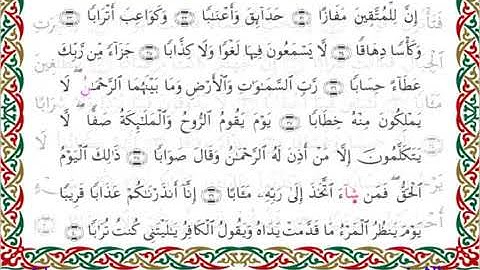 إِنَّ لِلْمُتَّقِينَ مَفَازًا ۝ حَدَآئِقَ وَأَعْنَـٰبًا ۝ وَكَوَاعِبَ أَتْرَابًا ۝
وَكَأْسًا دِهَاقًا ۝ لَّا يَسْمَعُونَ فِيهَا لَغْوًا وَلَا كِذَّٰبًا ۝ جَزَآءً مِّن رَّبِّكَ
عَطَآءً حِسَابًا ۝ رَّبِّ ٱلسَّمَـٰوَٰتِ وَٱلْأَرْضِ وَمَا بَيْنَهُمَا ٱلرَّحْمَـٰنِ ۖ لَا
يَمْلِكُونَ مِنْهُ خِطَابًا ۝ يَوْمَ يَقُومُ ٱلرُّوحُ وَٱلْمَلَـٰٓئِكَةُ صَفًّا ۖ لَّا
يَتَكَلَّمُونَ إِلَّا مَنْ أَذِنَ لَهُ ٱلرَّحْمَـٰنُ وَقَالَ صَوَابًا ۝ ذَٰلِكَ ٱلْيَوْمُ
ٱلْحَقُّ ۖ فَمَن شَآءَ ٱتَّخَذَ إِلَىٰ رَبِّهِۦ مَـَٔابًا ۝ إِنَّآ أَنذَرْنَـٰكُمْ عَذَابًا قَرِيبًا
يَوْمَ يَنظُرُ ٱلْمَرْءُ مَا قَدَّمَتْ يَدَاهُ وَيَقُولُ ٱلْكَافِرُ يَـٰلَيْتَنِى كُنتُ تُرَٰبًۢا ۝